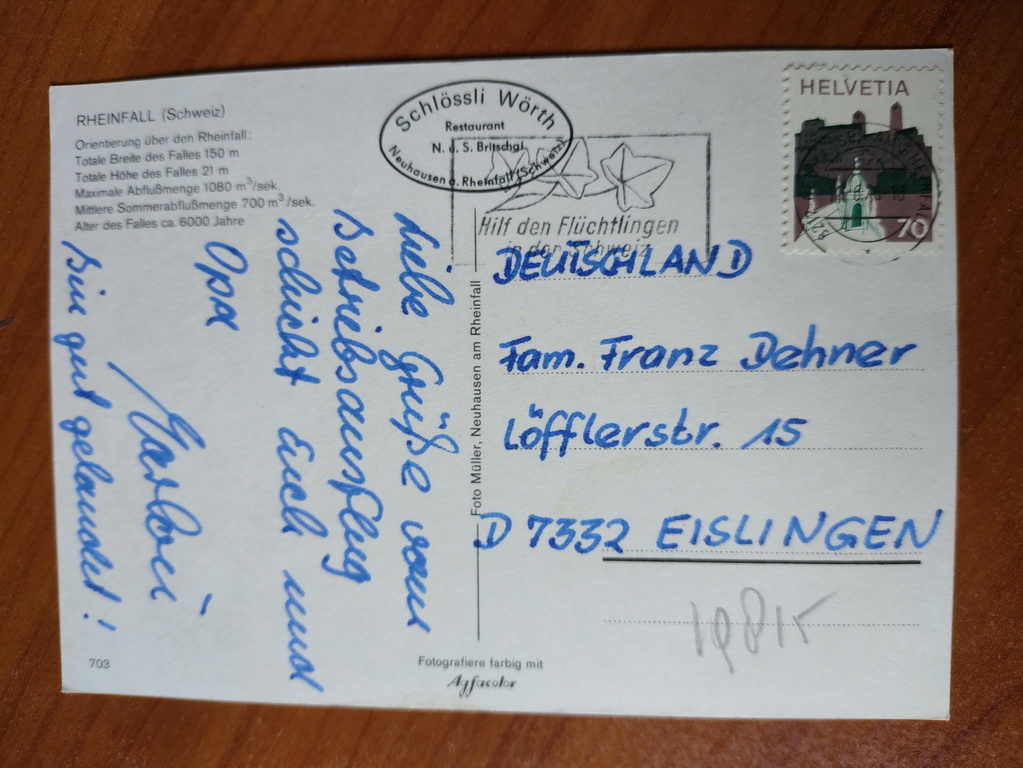 RHEINFALL (Schweiz)
Orientierung über den Rheinfall:
Totale Breite des Falles 150 m
Totale Höhe des Falles 21 m
Maximale Abflußmenge 1080 m³/sek.
Mittlere Sommerabflußmenge 700 m³/sek.
Alter des Falles ca. 6000 Jahre
Schlössli Wörth
Restaurant
N. u. S. Britschgi
Neuhausen a. Rheinfall (Schweiz)
Hilf den Flüchtlingen
in der Schweiz
HELVETIA
70
Liebe Grüße vom
Betriebsausflug
schickt Euch und
Opa
Bin gut gelandet!
Foto Müller, Neuhausen am Rheinfall
DEUTSCHLAND
Fam. Franz Dehner
Löfflerstr. 15
D 7332 EISLINGEN
703
Fotografiere farbig mit
Agfacolor